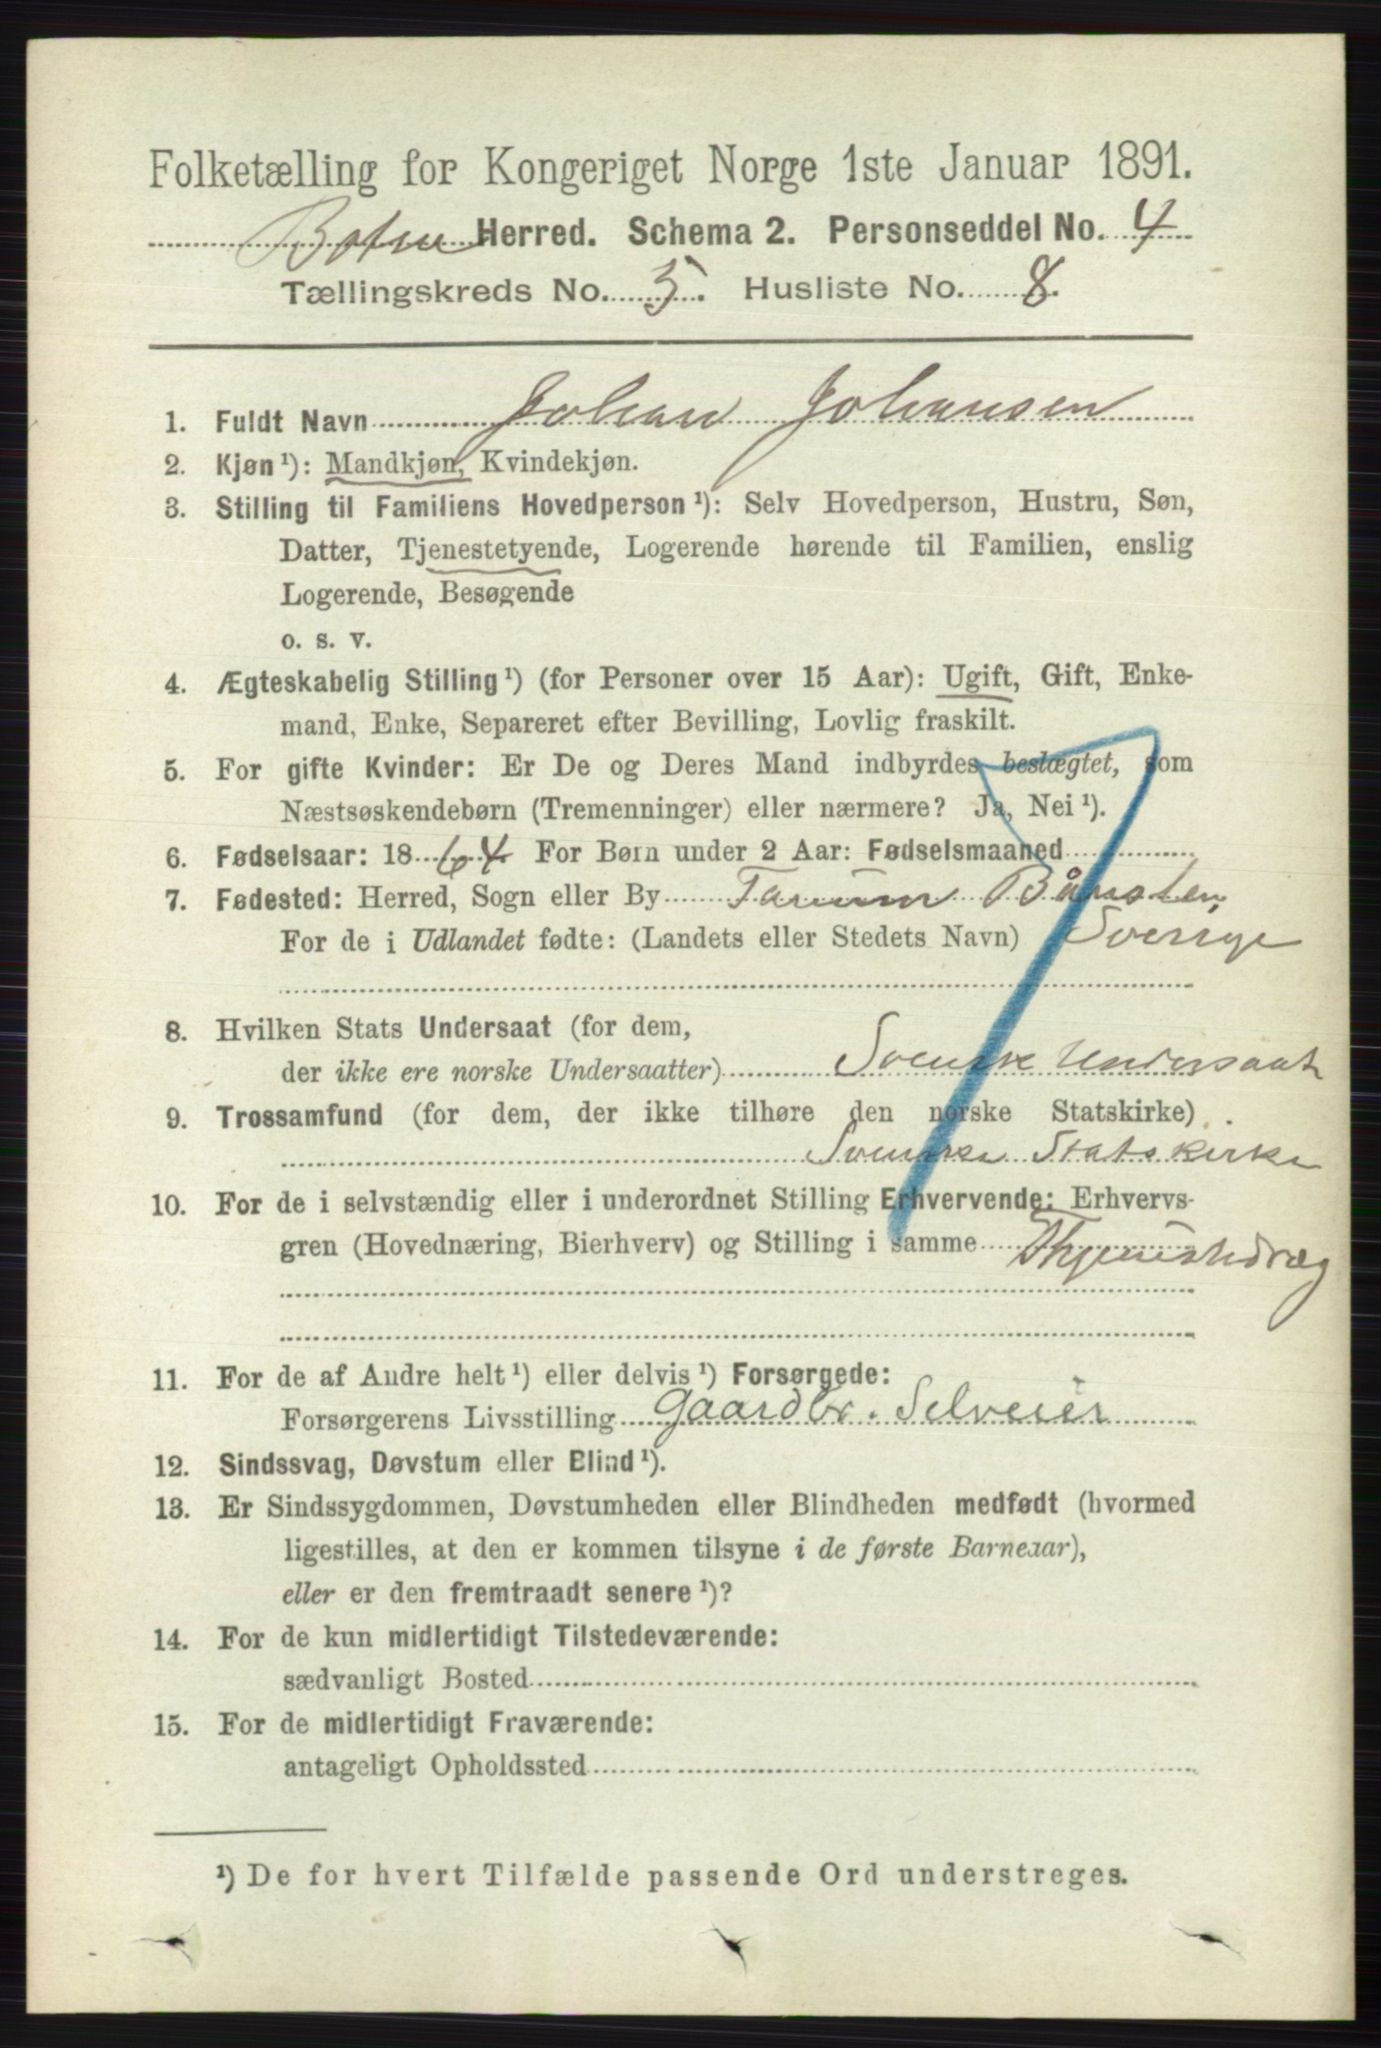 Folketælling for Kongeriget Norge 1ste Januar 1891.
Botne Herred. Schema 2. Personseddel No. 4
Tællingskreds No. 5. Husliste No. 8.
1. Fuldt Navn Johan Johansen
2. Kjøn ¹): Mandkjøn, Kvindekjøn.
3. Stilling til Familiens Hovedperson ¹): Selv Hovedperson, Hustru, Søn,
Datter, Tjenestetyende, Logerende hørende til Familien, enslig
Logerende, Besøgende
o. s. v.
4. Ægteskabelig Stilling ¹) (for Personer over 15 Aar): Ugift, Gift, Enke-
mand, Enke, Separeret efter Bevilling, Lovlig fraskilt.
5. For gifte Kvinder: Er De og Deres Mand indbyrdes beslægtet, som
Næstsøskendebørn (Tremenninger) eller nærmere? Ja, Nei ¹).
6. Fødselsaar: 1864 For Børn under 2 Aar: Fødselsmaaned
7. Fødested: Herred, Sogn eller By Tanum
For de i Udlandet fødte: (Landets eller Stedets Navn) Sverige
8. Hvilken Stats Undersaat (for dem,
der ikke ere norske Undersaatter) Svensk Undersaat
9. Trossamfund (for dem, der ikke tilhøre den norske Statskirke)
Svenske Statskirke
10. For de i selvstændig eller i underordnet Stilling Erhvervende: Erhvervs-
gren (Hovednæring, Bierhverv) og Stilling i samme Thjenestedræg
11. For de af Andre helt ¹) eller delvis ¹) Forsørgede:
Forsørgerens Livsstilling Gaardbr. Selveier
12. Sindssvag, Døvstum eller Blind ¹).
13. Er Sindssygdommen, Døvstumheden eller Blindheden medfødt (hvormed
ligestilles, at den er kommen tilsyne i de første Barneaar),
eller er den fremtraadt senere ¹)?
14. For de kun midlertidigt Tilstedeværende:
sædvanligt Bosted
15. For de midlertidigt Fraværende:
antageligt Opholdssted
¹) De for hvert Tilfælde passende Ord understreges.